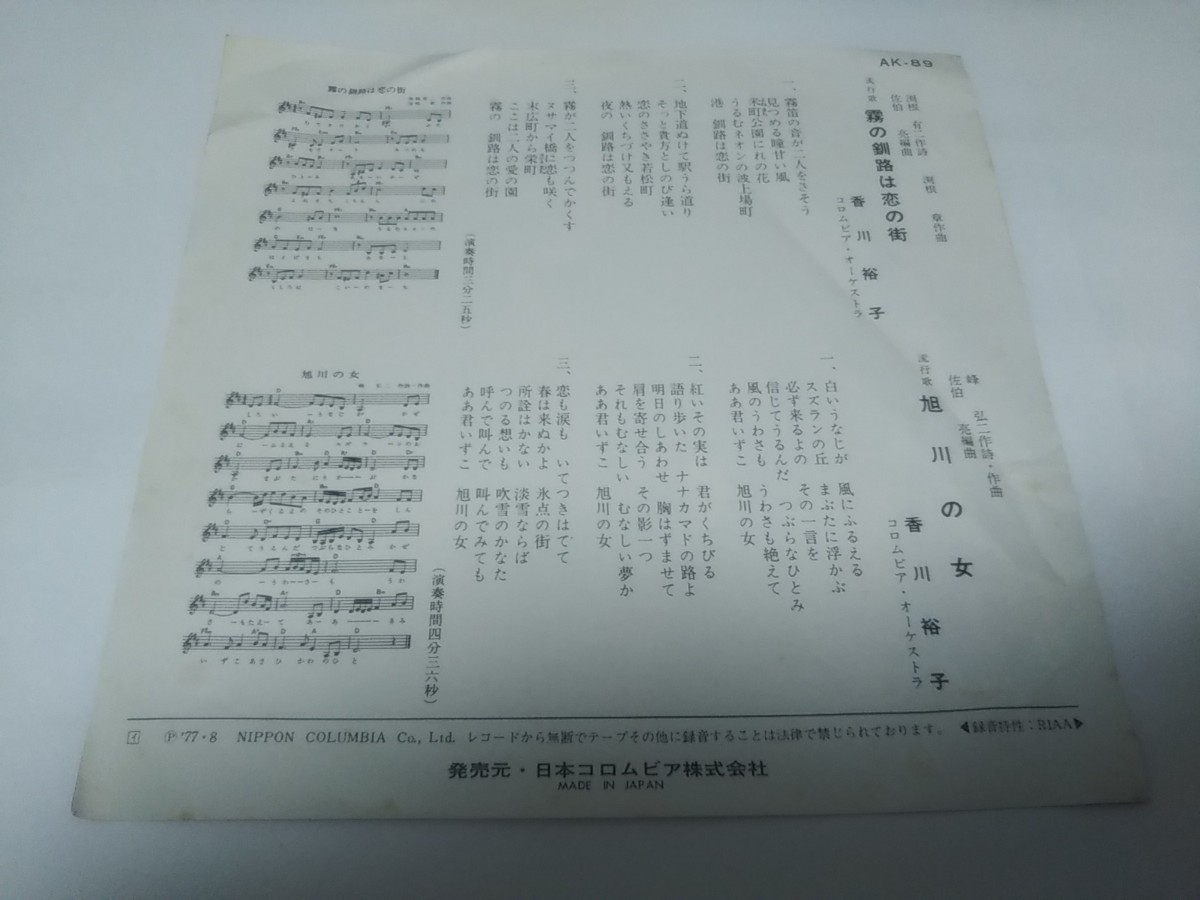 AK-89
流行歌
霧の釧路は恋の街
渕根 有二作詩
渕根 章作曲
佐伯 亮編曲
香川裕子
コロムビア・オーケストラ
一、霧笛の音が二人をさそう
見つめる瞳甘い風
米町公園にれの花
うるむネオンの波止場町
港 釧路は恋の街
二、地下道ぬけて駅うら道り
そっと貴方としのび逢い
恋のささやき若松町
熱いくちづけ又もえる
夜の 釧路は恋の街
三、霧が二人をつつんでかくす
ヌサマイ橋に恋も咲く
末広町から栄町
ここは二人の愛の園
霧の 釧路は恋の街
(演奏時間三分二五秒)
霧の釧路は恋の街
流行歌
旭川の女
峰 弘二作詩・作曲
佐伯 亮編曲
香川裕子
コロムビア・オーケストラ
一、白いうなじが 風にふるえる
スズランの丘 まぶたに浮かぶ
必ず来るよの その一言を
信じてうるんだ つぶらなひとみ
風のうわさも うわさも絶えて
ああ君いずこ 旭川の女
二、紅いその実は 君がくちびる
語り歩いた ナナカマドの路よ
明日のしあわせ 胸はずませて
肩を寄せ合う その影一つ
それもむなしい むなしい夢か
ああ君いずこ 旭川の女
三、恋も涙も いてつきはてて
春は来ぬかよ 氷点の街
所詮はかない 淡雪ならば
つのる想いも 吹雪のかなた
呼んで叫んで 叫んでみても
ああ君いずこ 旭川の女
(演奏時間四分三六秒)
旭川の女
イ Ⓟ '77・8 NIPPON COLUMBIA Co., Ltd. レコードから無断でテープその他に録音することは法律で禁じられております。 ◀録音特性:RIAA▶
発売元・日本コロムビア株式会社
MADE IN JAPAN